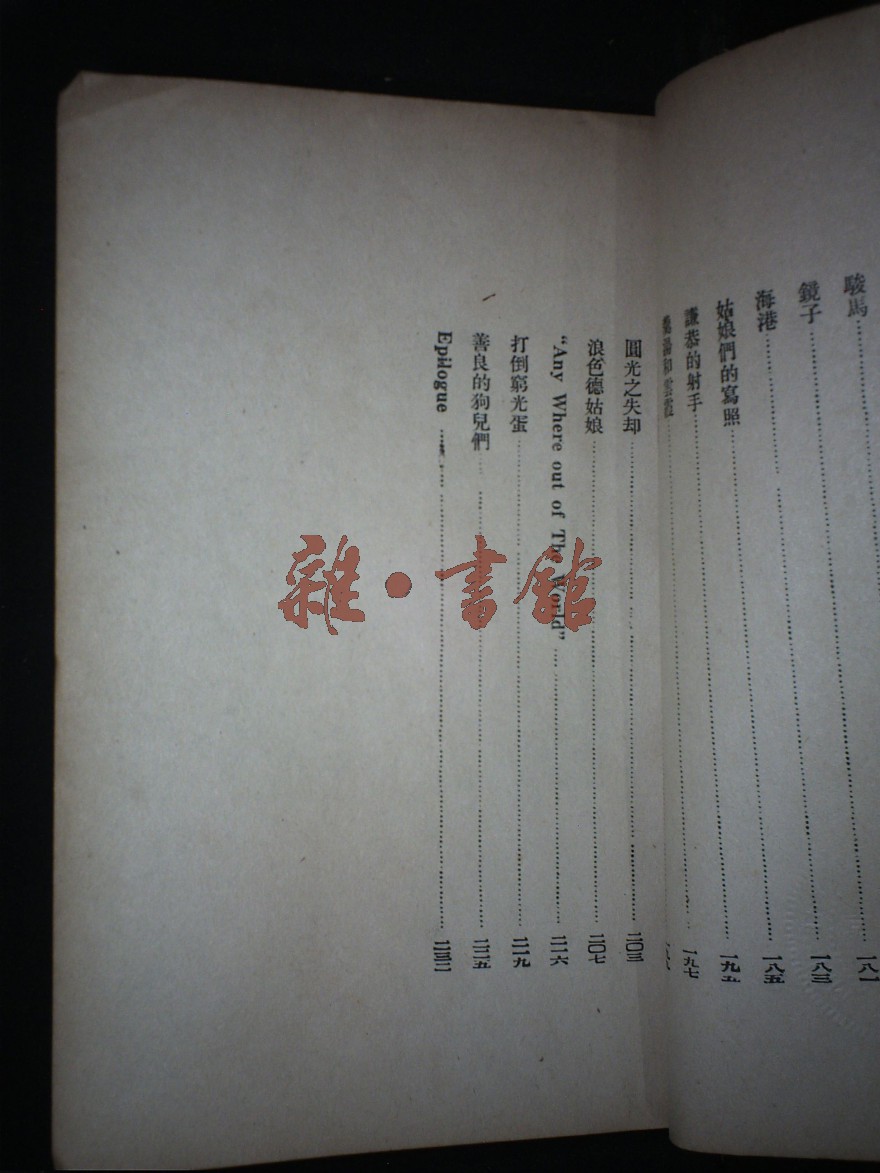 駿馬……一八一
鏡子……一八三
海港……一八五
姑娘們的寫照……一九五
謙恭的射手……一九七
湯和雲霞……
圓光之失却……二〇三
浪色德姑娘……二〇七
"Any Where out of The World"……二一六
打倒窮光蛋……二一九
善良的狗兒們……二二五
Epilogue……二三二
雜・書館